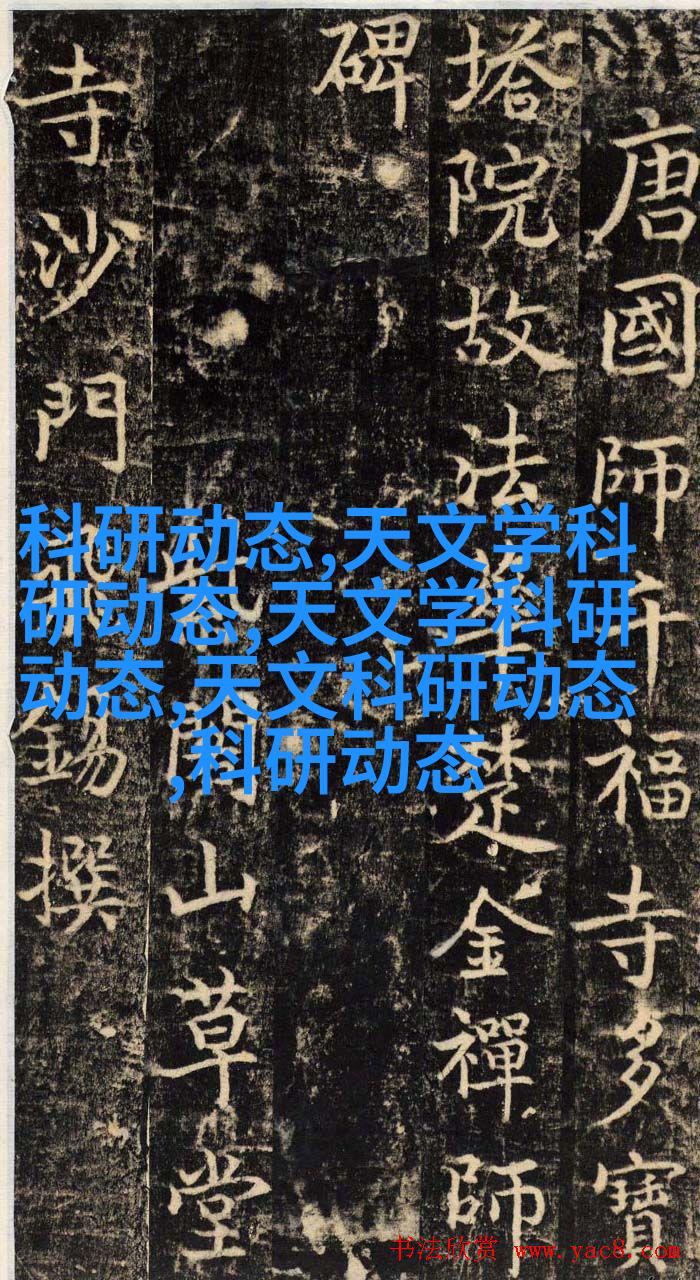 唐國師千福寺多寶
塔院故法華楚金禪師
碑
閣山草堂
寺沙門飛錫撰
科研动态,天文学科
研动态,天文学科研
动态,天文科研动态
,科研动态
书法欣赏 www.yac8.com